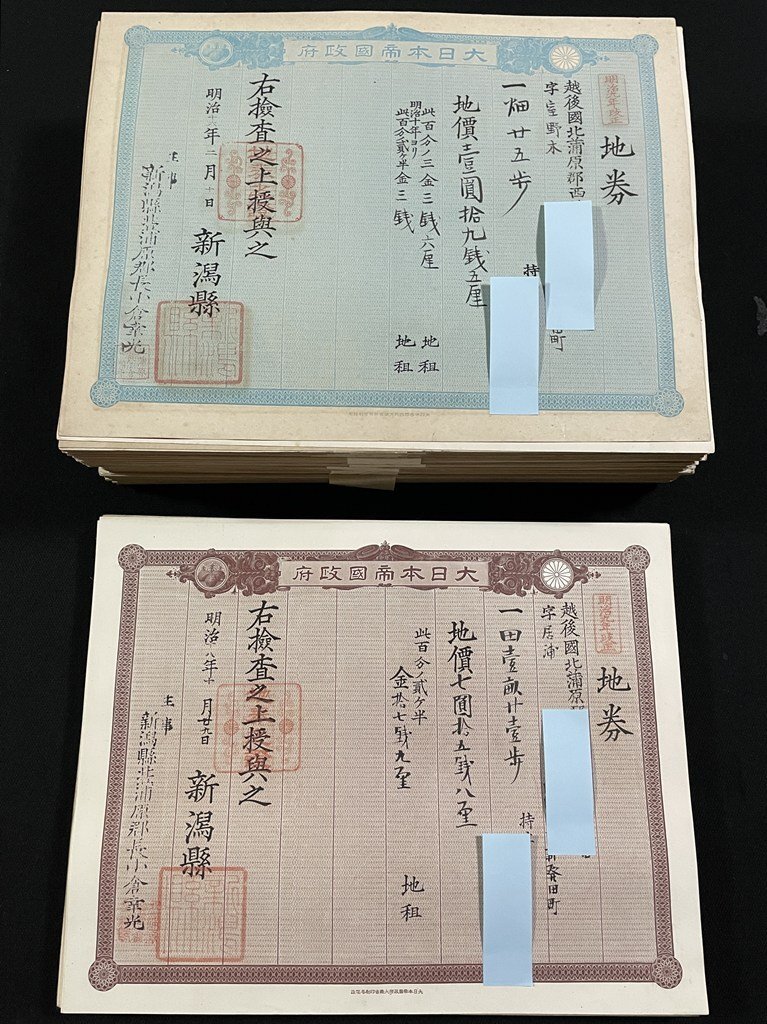 大日本帝國政府
明治九年改正
地券
越後國北蒲原郡西
字
町
持
一畑廿五歩
地價壹圓拾九銭五厘
此百分ノ三金三銭六厘 地租
明治十年ヨリ
此百分ノ貳ヶ半金三銭 地租
右檢査之上授與之
明治 年 月 日
新潟縣
主事
新潟縣北蒲原郡長小倉幸光
大日本帝國政府
明治九年改正
地券
越後國北蒲原郡
字居浦
新發田町
持
一田壹畝廿壹歩
地價七圓拾五銭八厘
此百分ノ貳ヶ半
金拾七銭九厘 地租
右檢査之上授與之
明治 八年十 月廿九日
新潟縣
主事
新潟縣北蒲原郡長小倉幸光